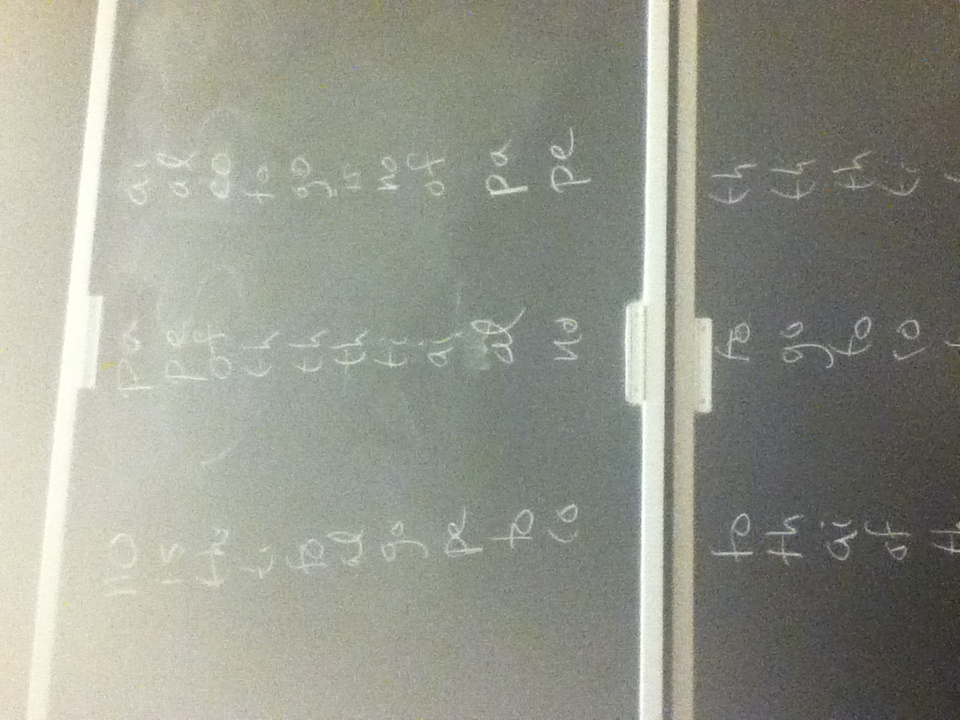 no pa ai
in pe al
th of co
ti th to
to th go
al th in
go ti no
pe ai of
to al pa
co no pe
to to th
th go th
ai to th
of co ti
th